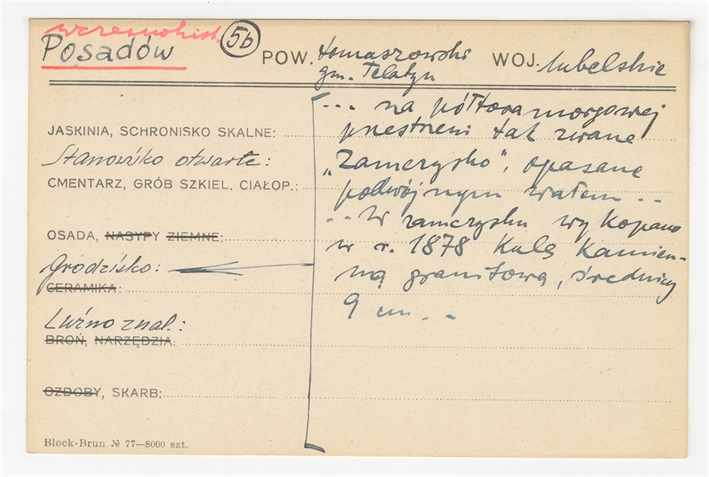 wczesnohist.
Posadów 5b POW. tomaszowski WOJ. lubelskie
gm. Telatyn
... na półtoramorgowej
JASKINIA, SCHRONISKO SKALNE: przestrzeni tak zwane
Stanowisko otwarte: „Zamczysko", opasane
CMENTARZ, GRÓB SZKIEL. CIAŁOP.: podwójnym wałem ..
.. W zamczysku wykopano
OSADA, NASYPY ZIEMNE: w r. 1878 kulę kamien-
Grodzisko: ną granitową, średnicy
CERAMIKA: 9 cm. ..
Luźno znal.:
BROŃ, NARZĘDZIA:
OZDOBY, SKARB:
Block-Brun № 77—8000 szt.